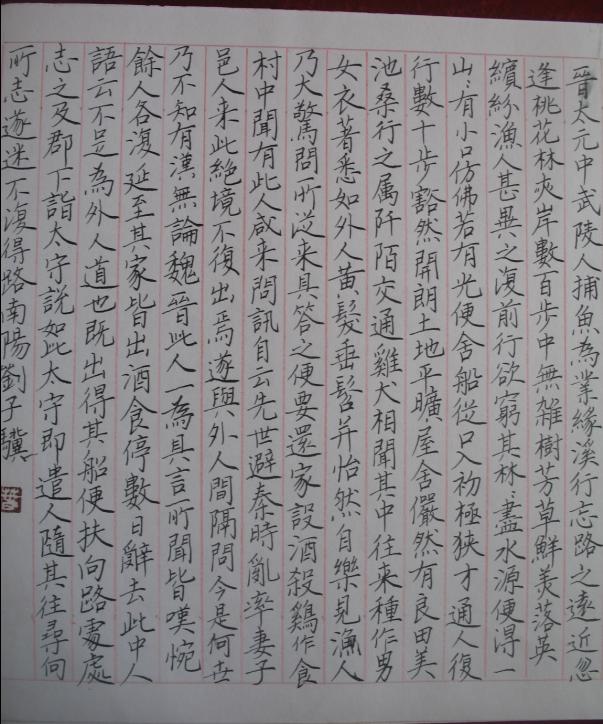 晉太元中武陵人捕魚為業緣溪行忘路之遠近忽
逢桃花林夾岸數百步中無雜樹芳草鮮美落英
繽紛漁人甚異之復前行欲窮其林:盡水源便得一
山:有小口仿佛若有光便舍船從口入初極狹才通人復
行數十步豁然開朗土地平曠屋舍儼然有良田美
池桑行之属阡陌交通雞犬相聞其中往来種作男
女衣著悉如外人黃髮垂髫并怡然自樂見漁人
乃大驚問所從来具答之便要還家設酒殺鷄作食
村中聞有此人咸来問訊自云先世避秦時亂率妻子
邑人来此絕境不復出焉遂與外人間隔問今是何世
乃不知有漢無論魏晉此人一為具言所聞皆嘆惋
餘人各復延至其家皆出酒食停數日辭去此中人
語云不足為外人道也既出得其船便扶向路處處
志之及郡下詣太守說如此太守即遣人隨其往尋向
所志遂迷不復得路南陽劉子驥